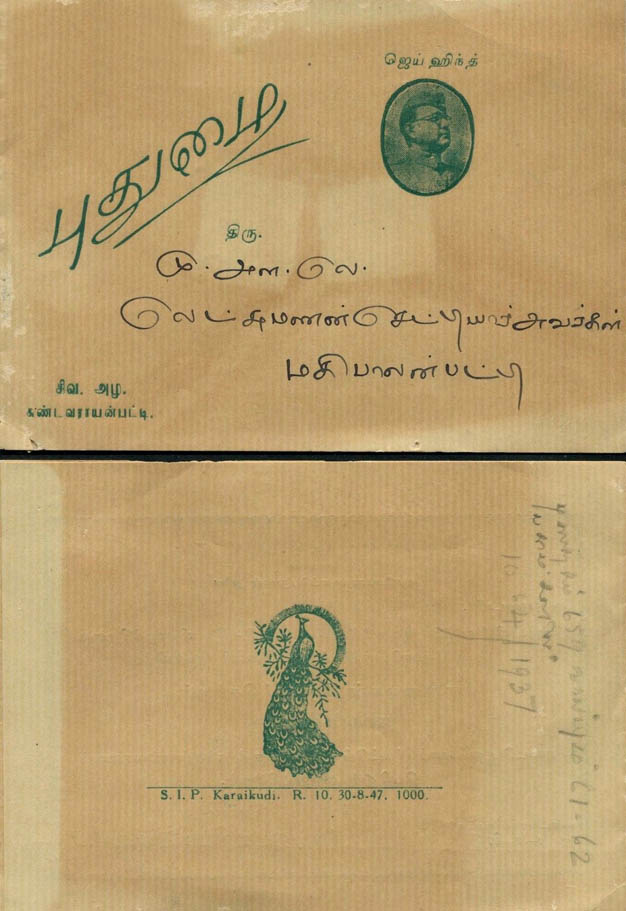 ஜெய் ஹிந்த்
புதுமை
திரு.
மு. அள. லெ.
லெட்சுமணன் செட்டியார் அவர்கள்
மகிபாலன்பட்டி
சிவ. அழ.
கண்டவராயன்பட்டி.
S. I. P. Karaikudi. R. 10. 30-8-47. 1000.
1937
61-62